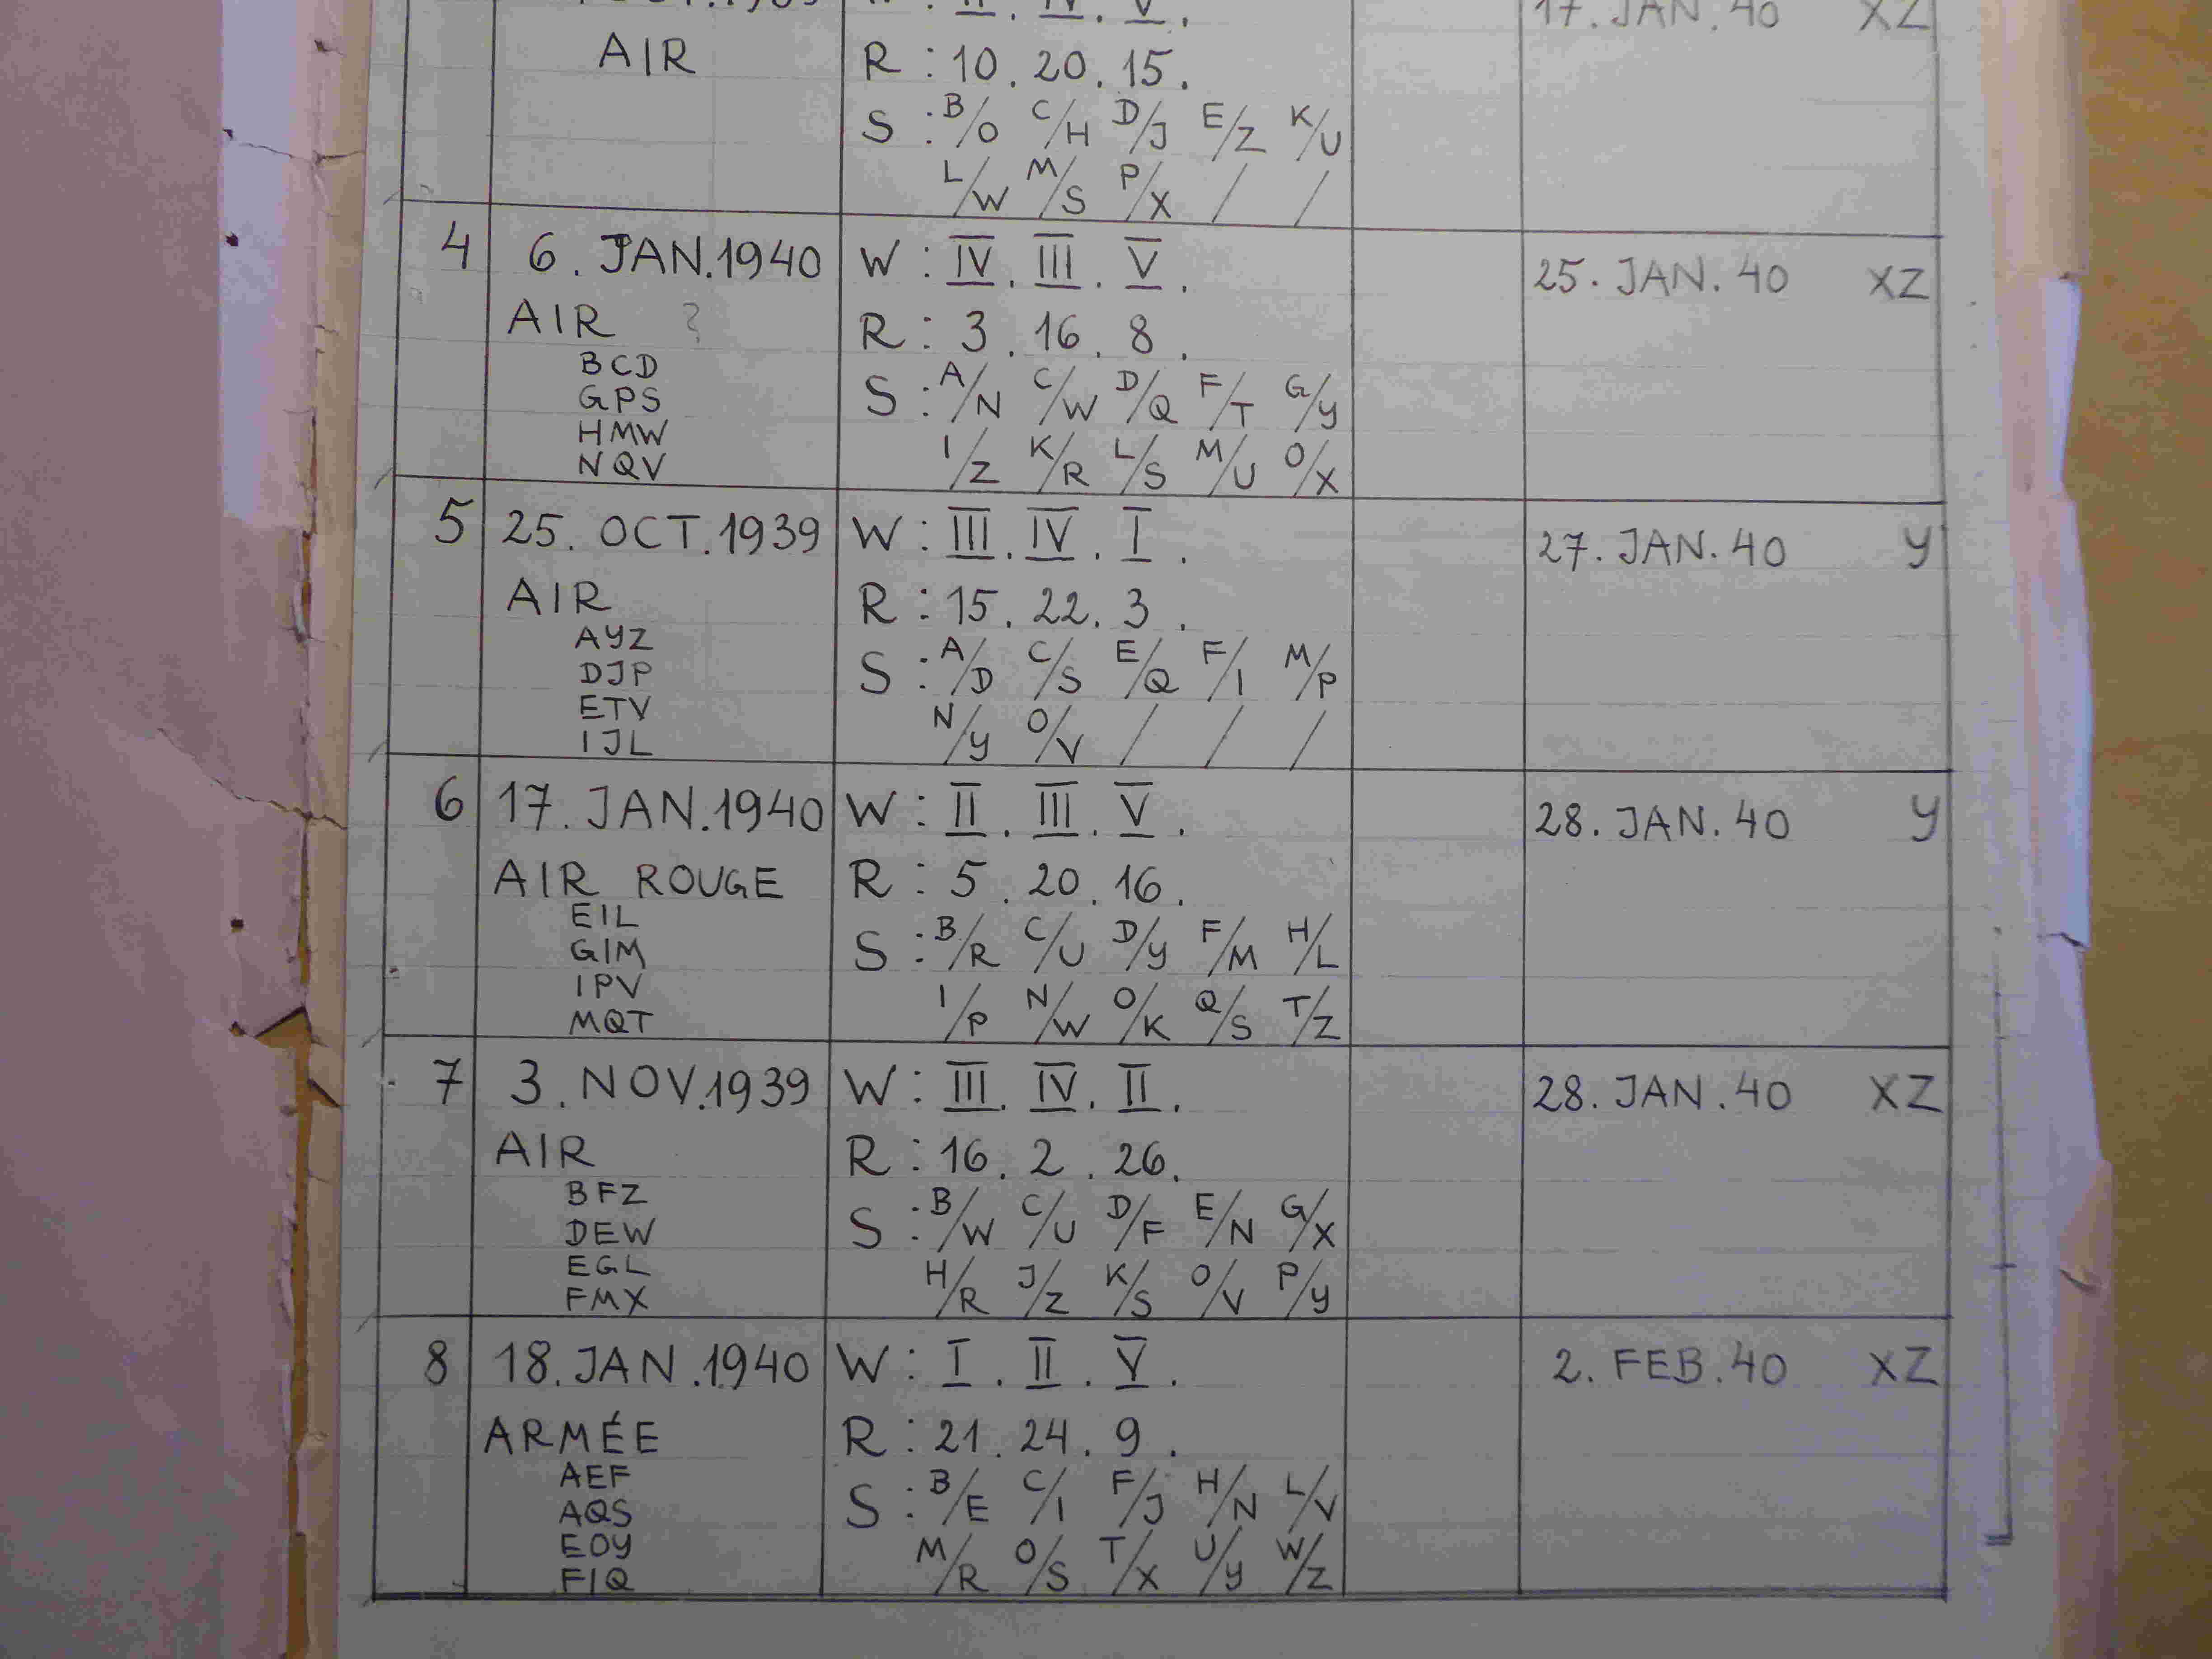 17. JAN. 40 XZ
AIR R : 10 . 20 . 15 .
S : B/O C/H D/J E/Z K/U
L/W M/S P/X / /
4 6. JAN. 1940 W : IV . III . V . 25. JAN. 40 XZ
AIR ? R : 3 . 16 . 8 .
BCD
GPS S : A/N C/W D/Q F/T G/Y
HMW
NQV I/Z K/R L/S M/U O/X
5 25. OCT. 1939 W : III . IV . I . 27. JAN. 40 Y
AIR R : 15 . 22 . 3 .
AYZ
DJP S : A/D C/S E/Q F/I M/P
ETV
IJL N/Y O/V / / /
6 17. JAN. 1940 W : II . III . V . 28. JAN. 40 Y
AIR ROUGE R : 5 . 20 . 16 .
EIL
GIM S : B/R C/U D/Y F/M H/L
IPV
MQT I/P N/W O/K Q/S T/Z
7 3. NOV. 1939 W : III . IV . II . 28. JAN. 40 XZ
AIR R : 16 . 2 . 26 .
BFZ
DEW S : B/W C/U D/F E/N G/X
EGL
FMX H/R J/Z K/S O/V P/Y
8 18. JAN. 1940 W : I . II . V . 2. FEB. 40 XZ
ARMÉE R : 21 . 24 . 9 .
AEF
AQS S : B/E C/I F/J H/N L/V
EOY
FIQ M/R O/S T/X U/Y W/Z